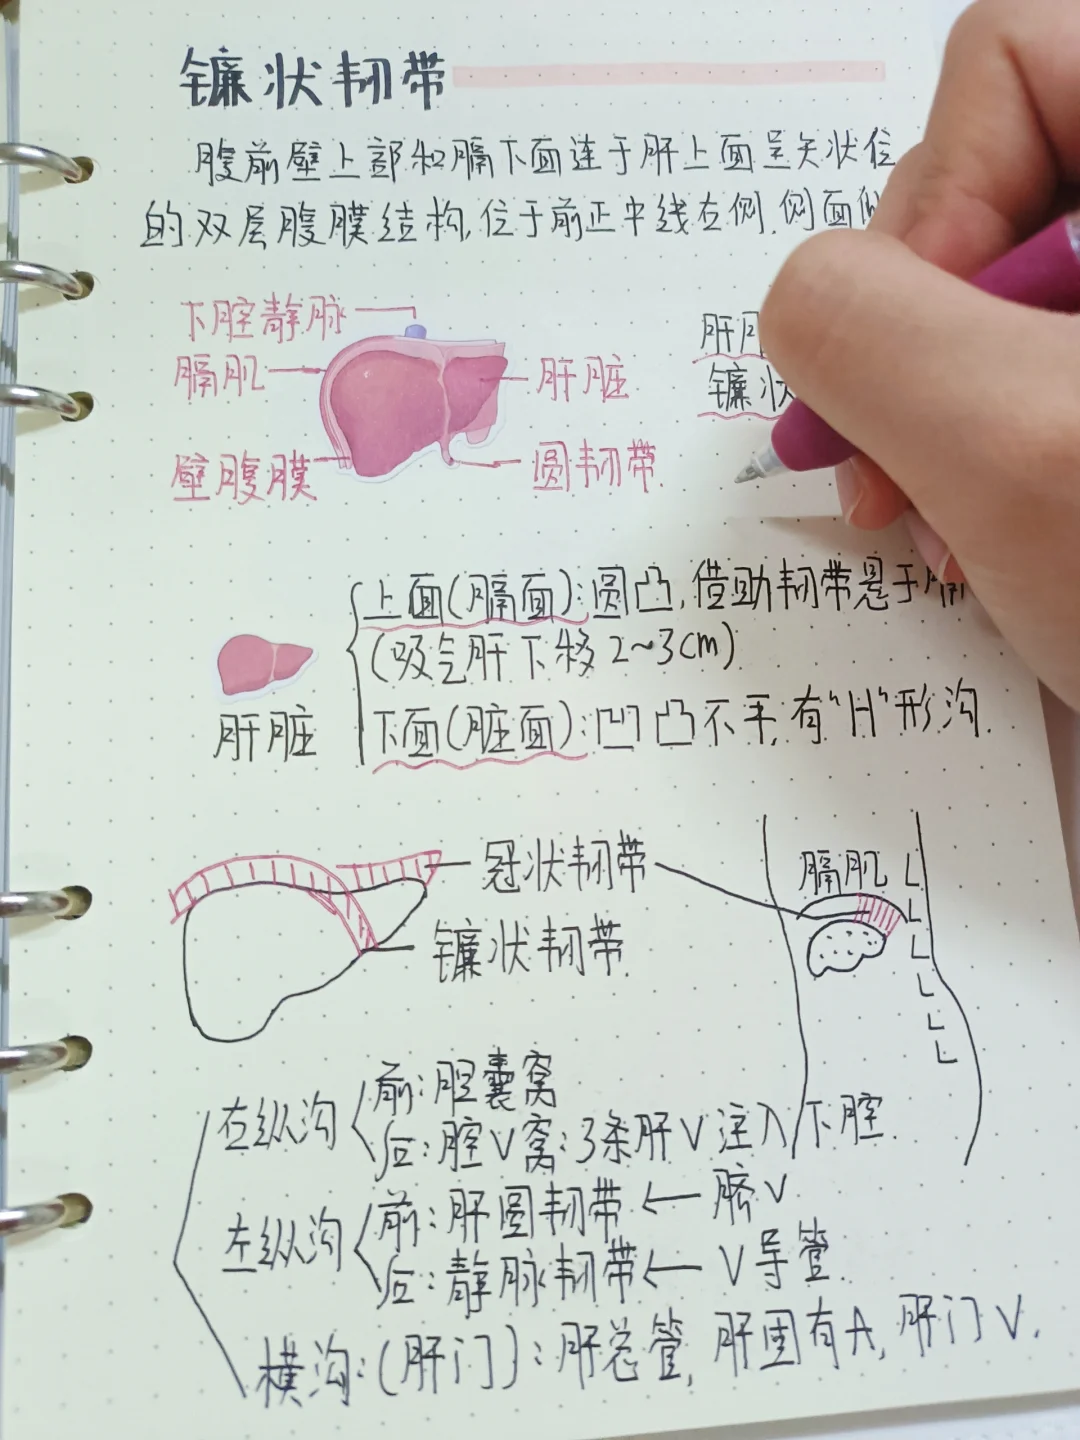 镰状韧带
腹前壁上部和膈下面连于肝上面呈矢状位
的双层腹膜结构,位于前正中线右侧.侧面
下腔静脉
膈肌
肝脏
壁腹膜
圆韧带
肝
镰状
上面(膈面):圆凸,借助韧带悬于
(吸气肝下移2~3cm)
肝脏
下面(脏面):凹凸不平,有“H”形沟.
冠状韧带
膈肌
镰状韧带
右纵沟
前:胆囊窝
后:腔V窝:3条肝V注入下腔.
左纵沟
前:肝圆韧带←脐V
后:静脉韧带←V导管.
横沟:(肝门):肝总管,肝固有A,肝门V.